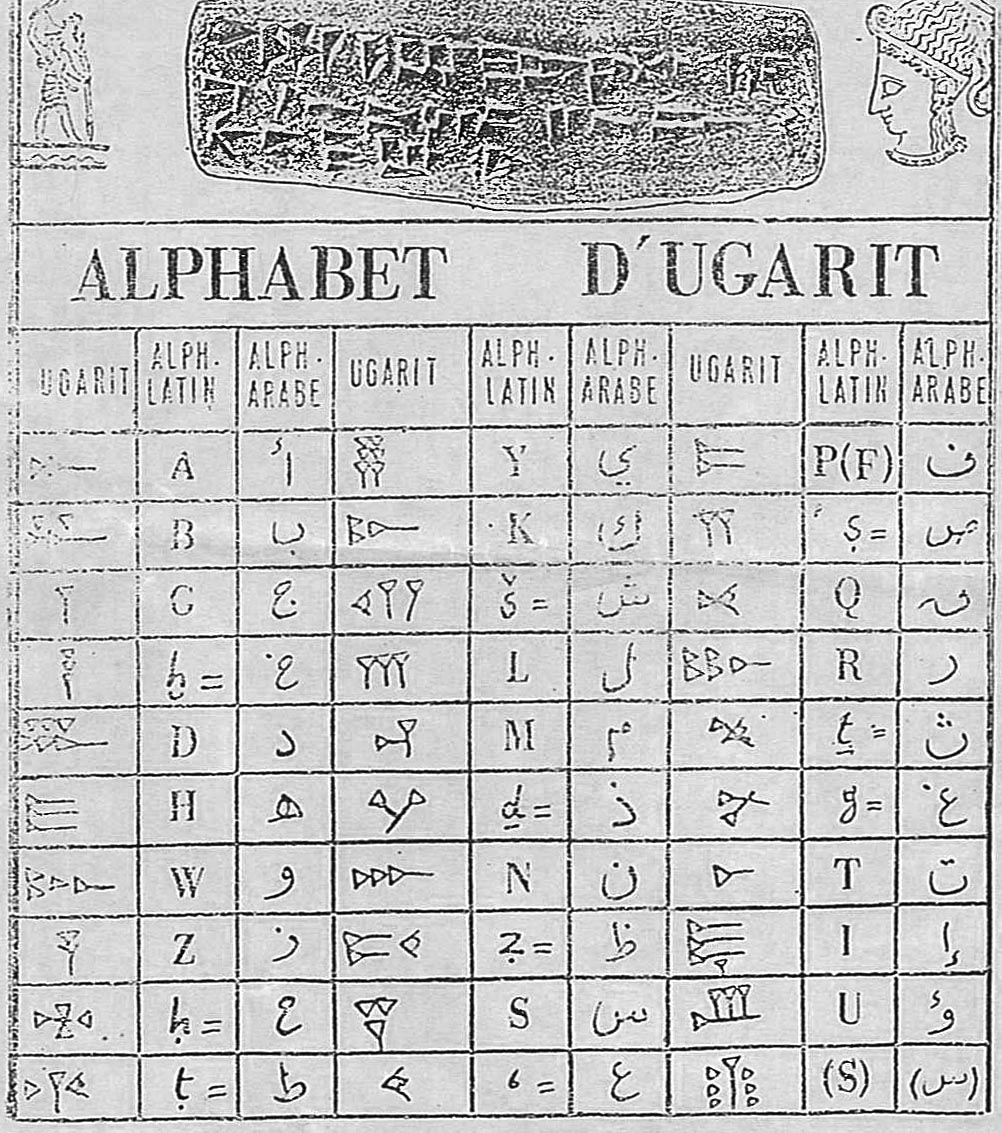 ALPHABET D'UGARIT
UGARIT ALPH. LATIN ALPH. ARABE UGARIT ALPH. LATIN ALPH. ARABE UGARIT ALPH. LATIN ALPH. ARABE
𐎀 A أ 𐎊 Y ي 𐎔 P(F) ف
𐎁 B ب 𐎋 K ك 𐎕 ṣ= ص
𐎂 G ج 𐎌 š= ش 𐎖 Q ق
𐎃 ḫ= خ 𐎍 L ل 𐎗 R ر
𐎄 D د 𐎎 M م 𐎘 ṯ= ث
𐎅 H ه 𐎏 ḏ= ذ 𐎙 g= غ
𐎆 W و 𐎐 N ن 𐎚 T ت
𐎇 Z ز 𐎑 ẓ= ظ 𐎛 I إ
𐎈 ḥ= ح 𐎒 S س 𐎜 U ؤ
𐎉 ṭ= ط 𐎓 ʿ= ع 𐎝 (S) (س)